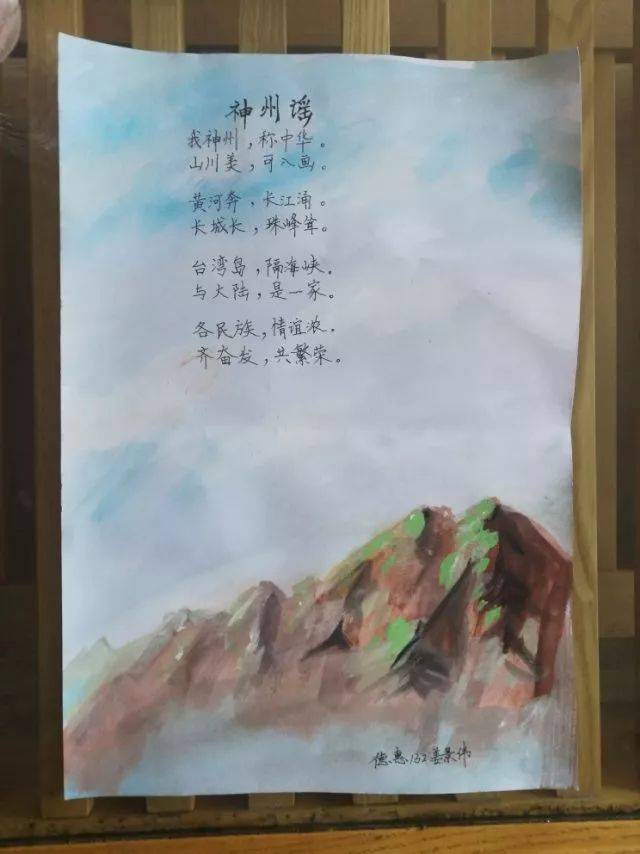 神州谣
我神州，称中华。
山川美，可入画。
黄河奔，长江涌。
长城长，珠峰耸。
台湾岛，隔海峡。
与大陆，是一家。
各民族，情谊浓.
齐奋发，共繁荣。
德惠132姜景伟